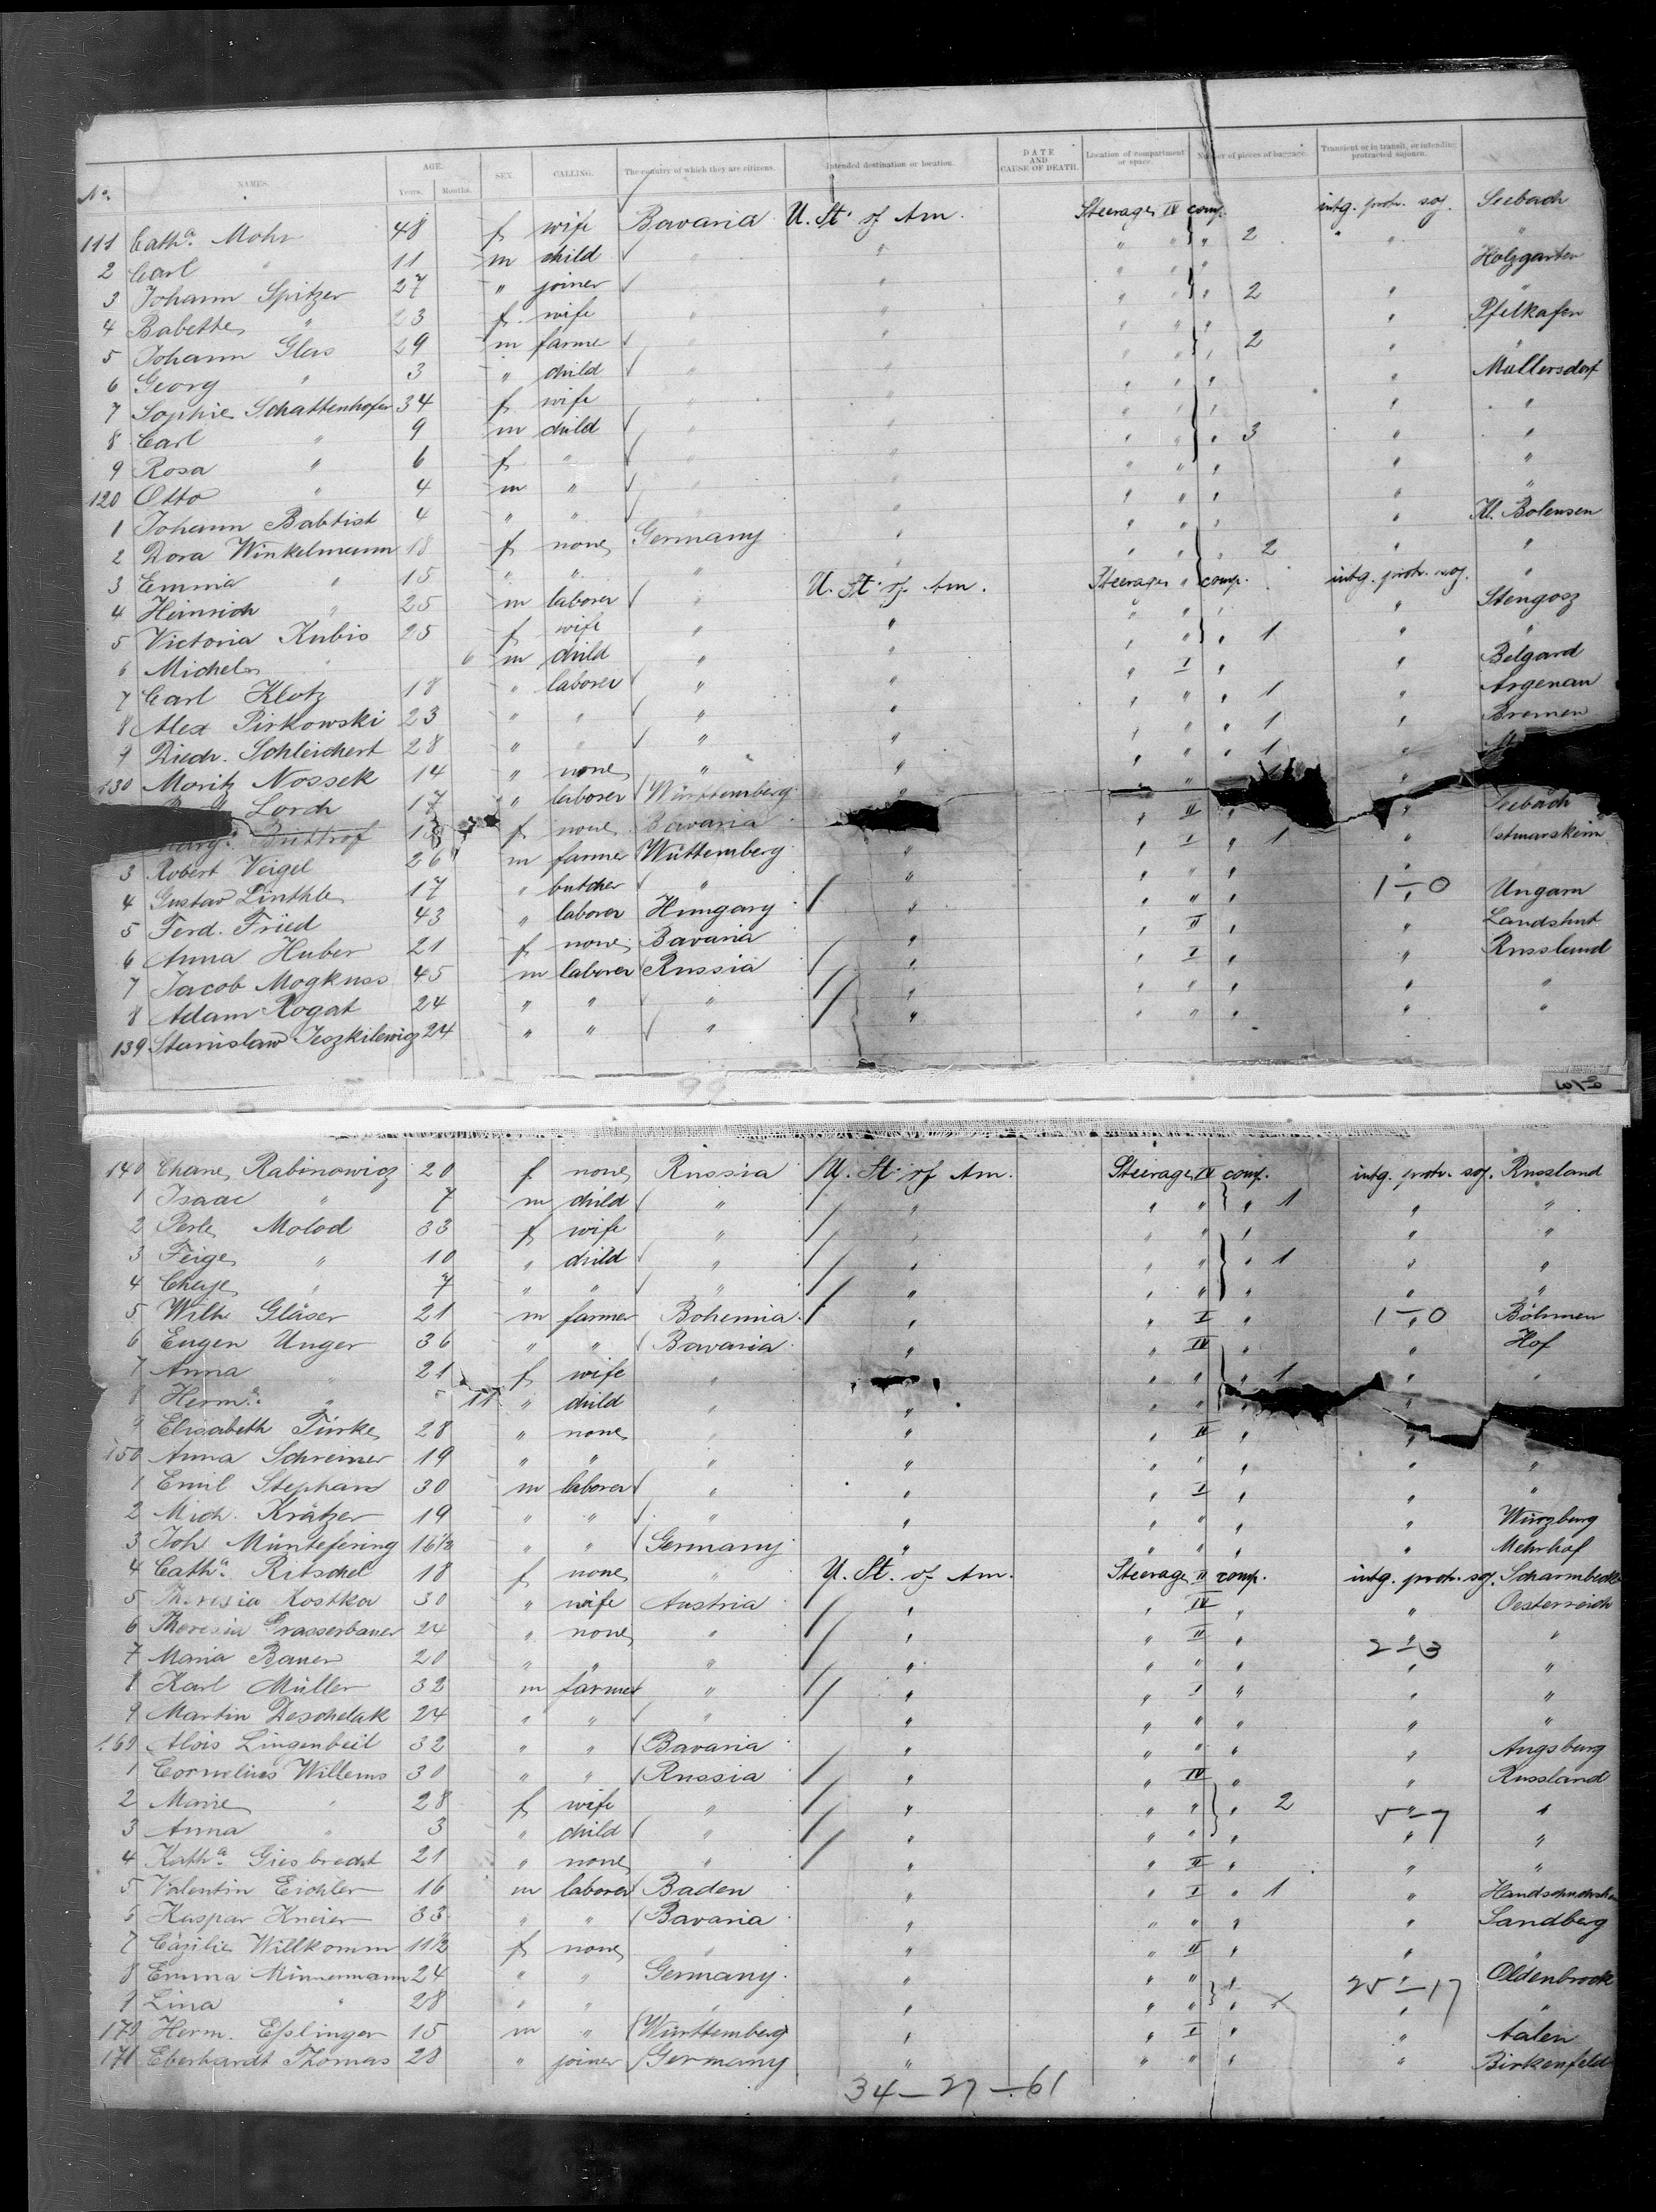 No. NAMES. AGE. Years. Months. SEX. CALLING. The country of which they are citizens. Intended destination or location. DATE AND CAUSE OF DEATH. Location of compartment or space. Number of pieces of baggage. Transient or in transit, or intending protracted sojourn.
111 Cath.a Mohr 48 f wife Bavaria U. St. of Am. Steerage IV comp. intg. protr. soj. Seebach
2 Carl " 11 m child " " " " " 2 " "
3 Johann Spitzer 27 " joiner " " " " " " Holzgarten
4 Babette " 23 f wife " " " " " 2 " "
5 Johann Glas 29 m farmer " " " " " " Pfelkafen
6 Georg " 3 " child " " " " " 2 " "
7 Sophie Schattenhofer 34 f wife " " " " " " Mallersdorf
8 Carl " 9 m child " " " " " " "
9 Rosa " 6 f " " " " " " 3 " "
120 Otto " 4 m " " " " " " " "
1 Johann Babtist 4 " " " " " " " " "
2 Dora Winkelmann 18 f none Germany " " " " " Kl. Bolensen
3 Emma " 15 " " " " " " " 2 " "
4 Heinrich " 25 m laborer " U. St. of Am. Steerage " comp. intg. protr. soj. "
5 Victoria Kubis 25 f wife " " " " " " Stengosz
6 Michel " 6 m child " " " " " 1 " "
7 Carl Klotz 18 " laborer " " " I " " Belgard
8 Alex Pirkowski 23 " " " " " " " 1 " Argenau
9 Diedr. Schleichert 28 " " " " " " " 1 " Bremen
130 Moritz Nossek 14 " none " " " " " 1 "
Lorch 17 " laborer Württemberg " " "
Buttrof 18 f none Bavaria " II " " Seebach
3 Robert Veigel 26 m farmer Württemberg " " I " 1 "
4 Gustav Linthle 17 " butcher " " " " " " "
5 Ferd. Fried 43 " laborer Hungary " " " " 1-0 Ungarn
6 Anna Huber 21 f none Bavaria " " II " " Landshut
7 Jacob Mogkuss 45 m laborer Russia " " I " " Russland
8 Adam Rogat 24 " " " " " " " " "
139 Stanislaw Jeszkilewicz 24 " " " " " " " " "
140 Chane Rabinowicz 20 f none Russia U. St. of Am. Steerage IV comp. intg. protr. soj. Russland
1 Isaac " 7 m child " " " " " 1 " "
2 Perle Molod 33 f wife " " " " " " "
3 Feige " 10 " child " " " " " 1 " "
4 Chaje " 7 " " " " " " " " "
5 Wilh. Gläser 21 m farmer Bohemia " " I " 1-0 Böhmen
6 Eugen Unger 36 " " Bavaria " " IV " " Hof
7 Anna " 21 f wife " " " " " 1 " "
8 Herm.a " 11 " child " " " " " "
9 Elisabeth Türke 28 " none " " " II " "
150 Anna Schreiner 19 " " " " " " " " "
1 Emil Stephan 30 m laborer " " " I " " "
2 Mich. Krätzer 19 " " " " " " " " Würzburg
3 Joh. Müntefering 16½ " " Germany " " " " " Mehrhof
4 Cath.a Ritschel 18 f none " U. St. of Am. Steerage II comp. intg. protr. soj. Scharmbeck
5 Theresia Kostka 30 " wife Austria " " IV " " Oesterreich
6 Theresia Grasserbauer 24 " none " " " II " " "
7 Maria Bauer 20 " " " " " " " 2-3 "
8 Karl Müller 32 m farmer " " " I " " "
9 Martin Deschelak 24 " " " " " " " " "
160 Alois Lingenbeil 32 " " Bavaria " " " " " Augsburg
1 Cornelius Willems 30 " " Russia " " IV " " Russland
2 Marie " 28 f wife " " " " " 2 " "
3 Anna " 3 " child " " " " " 5-7 "
4 Kath.a Giesbrecht 21 " none " " " II " " "
5 Valentin Eichler 16 m laborer Baden " " I " 1 "
6 Kaspar Kneier 33 " " Bavaria " " " " " Sandberg
7 Cäzilie Willkomm 11½ f none " " " II " " "
8 Emma Minnemann 24 " " Germany " " " " " Oldenbrook
9 Lina " 28 " " " " " " " 25-17 "
170 Herm. Eßlinger 15 m " Württemberg " " I " " Aalen
171 Eberhardt Thomas 28 " joiner Germany " " " " " Birkenfeld
34-27-61